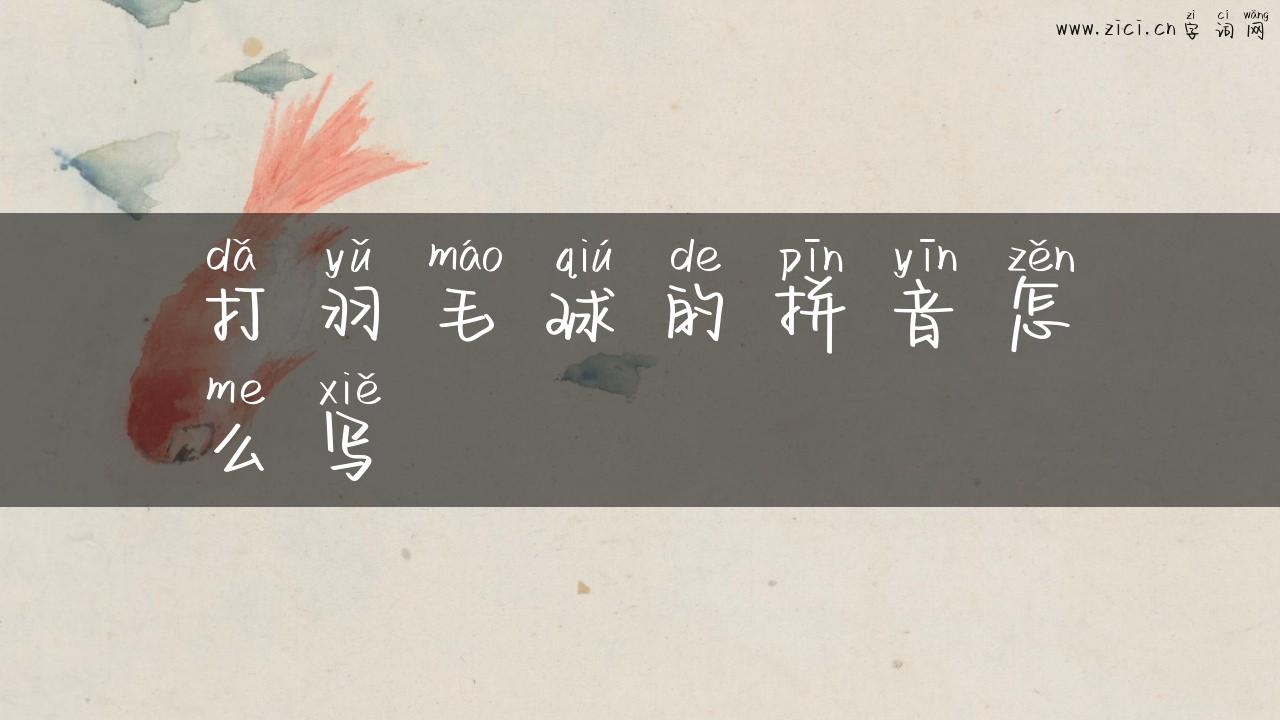 zì cí wǎng
www.zici.cn 字词网
dǎ yǔ máo qiú de pīn yīn zěn
打羽毛球的拼音怎
me xiě
么写